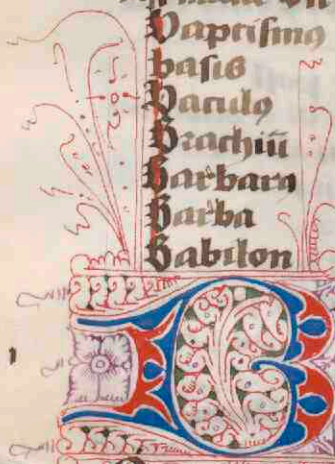 Baptismꝰ
basis
Baculꝰ
Brachiū
Barbara
Barba
Babilon